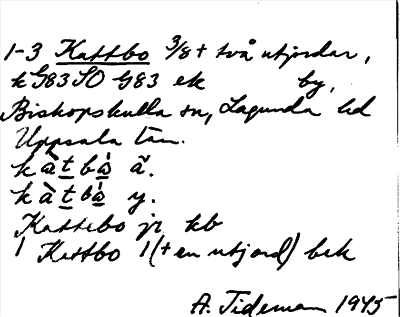 1-3 Kattbo 3/8 + två utjordar,
k G83 SO G83 ek by,
Biskopskulla sn, Lagunda hd
Uppsala län.
kàt̲bå̲ ä.
kàt̲bå̲ y.
Kattebo jr kb
1 Kattbo 1 (+ en utjord) bek
A. Tideman 1945